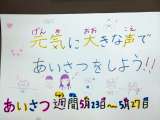 元気に大きな声で
あいさつをしよう!!
あいさつ週間5月23日~5月27日